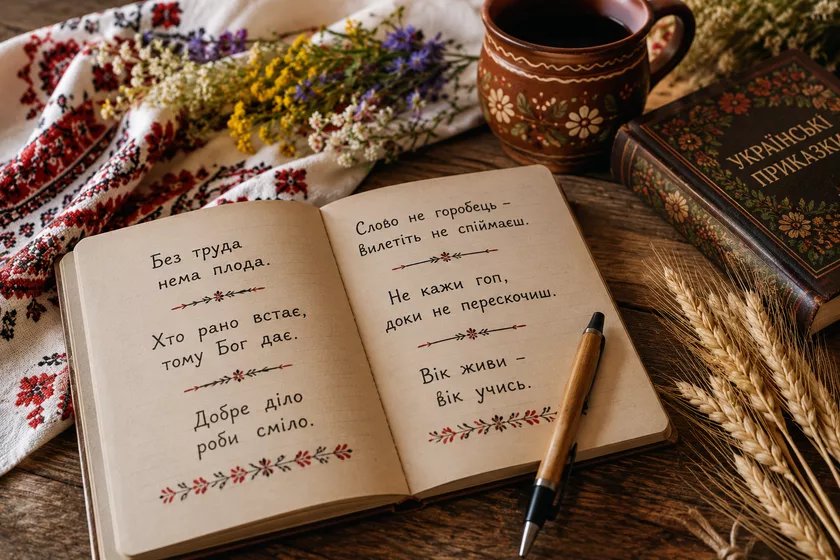 Без труда
нема плода.
Хто рано встає,
тому Бог дає.
Добре діло
роби сміло.
Слово не горобець –
вилетіть не спіймаєш.
Не кажи гоп,
доки не перескочиш.
Вік живи –
вік учись.
УКРАЇНСЬКІ